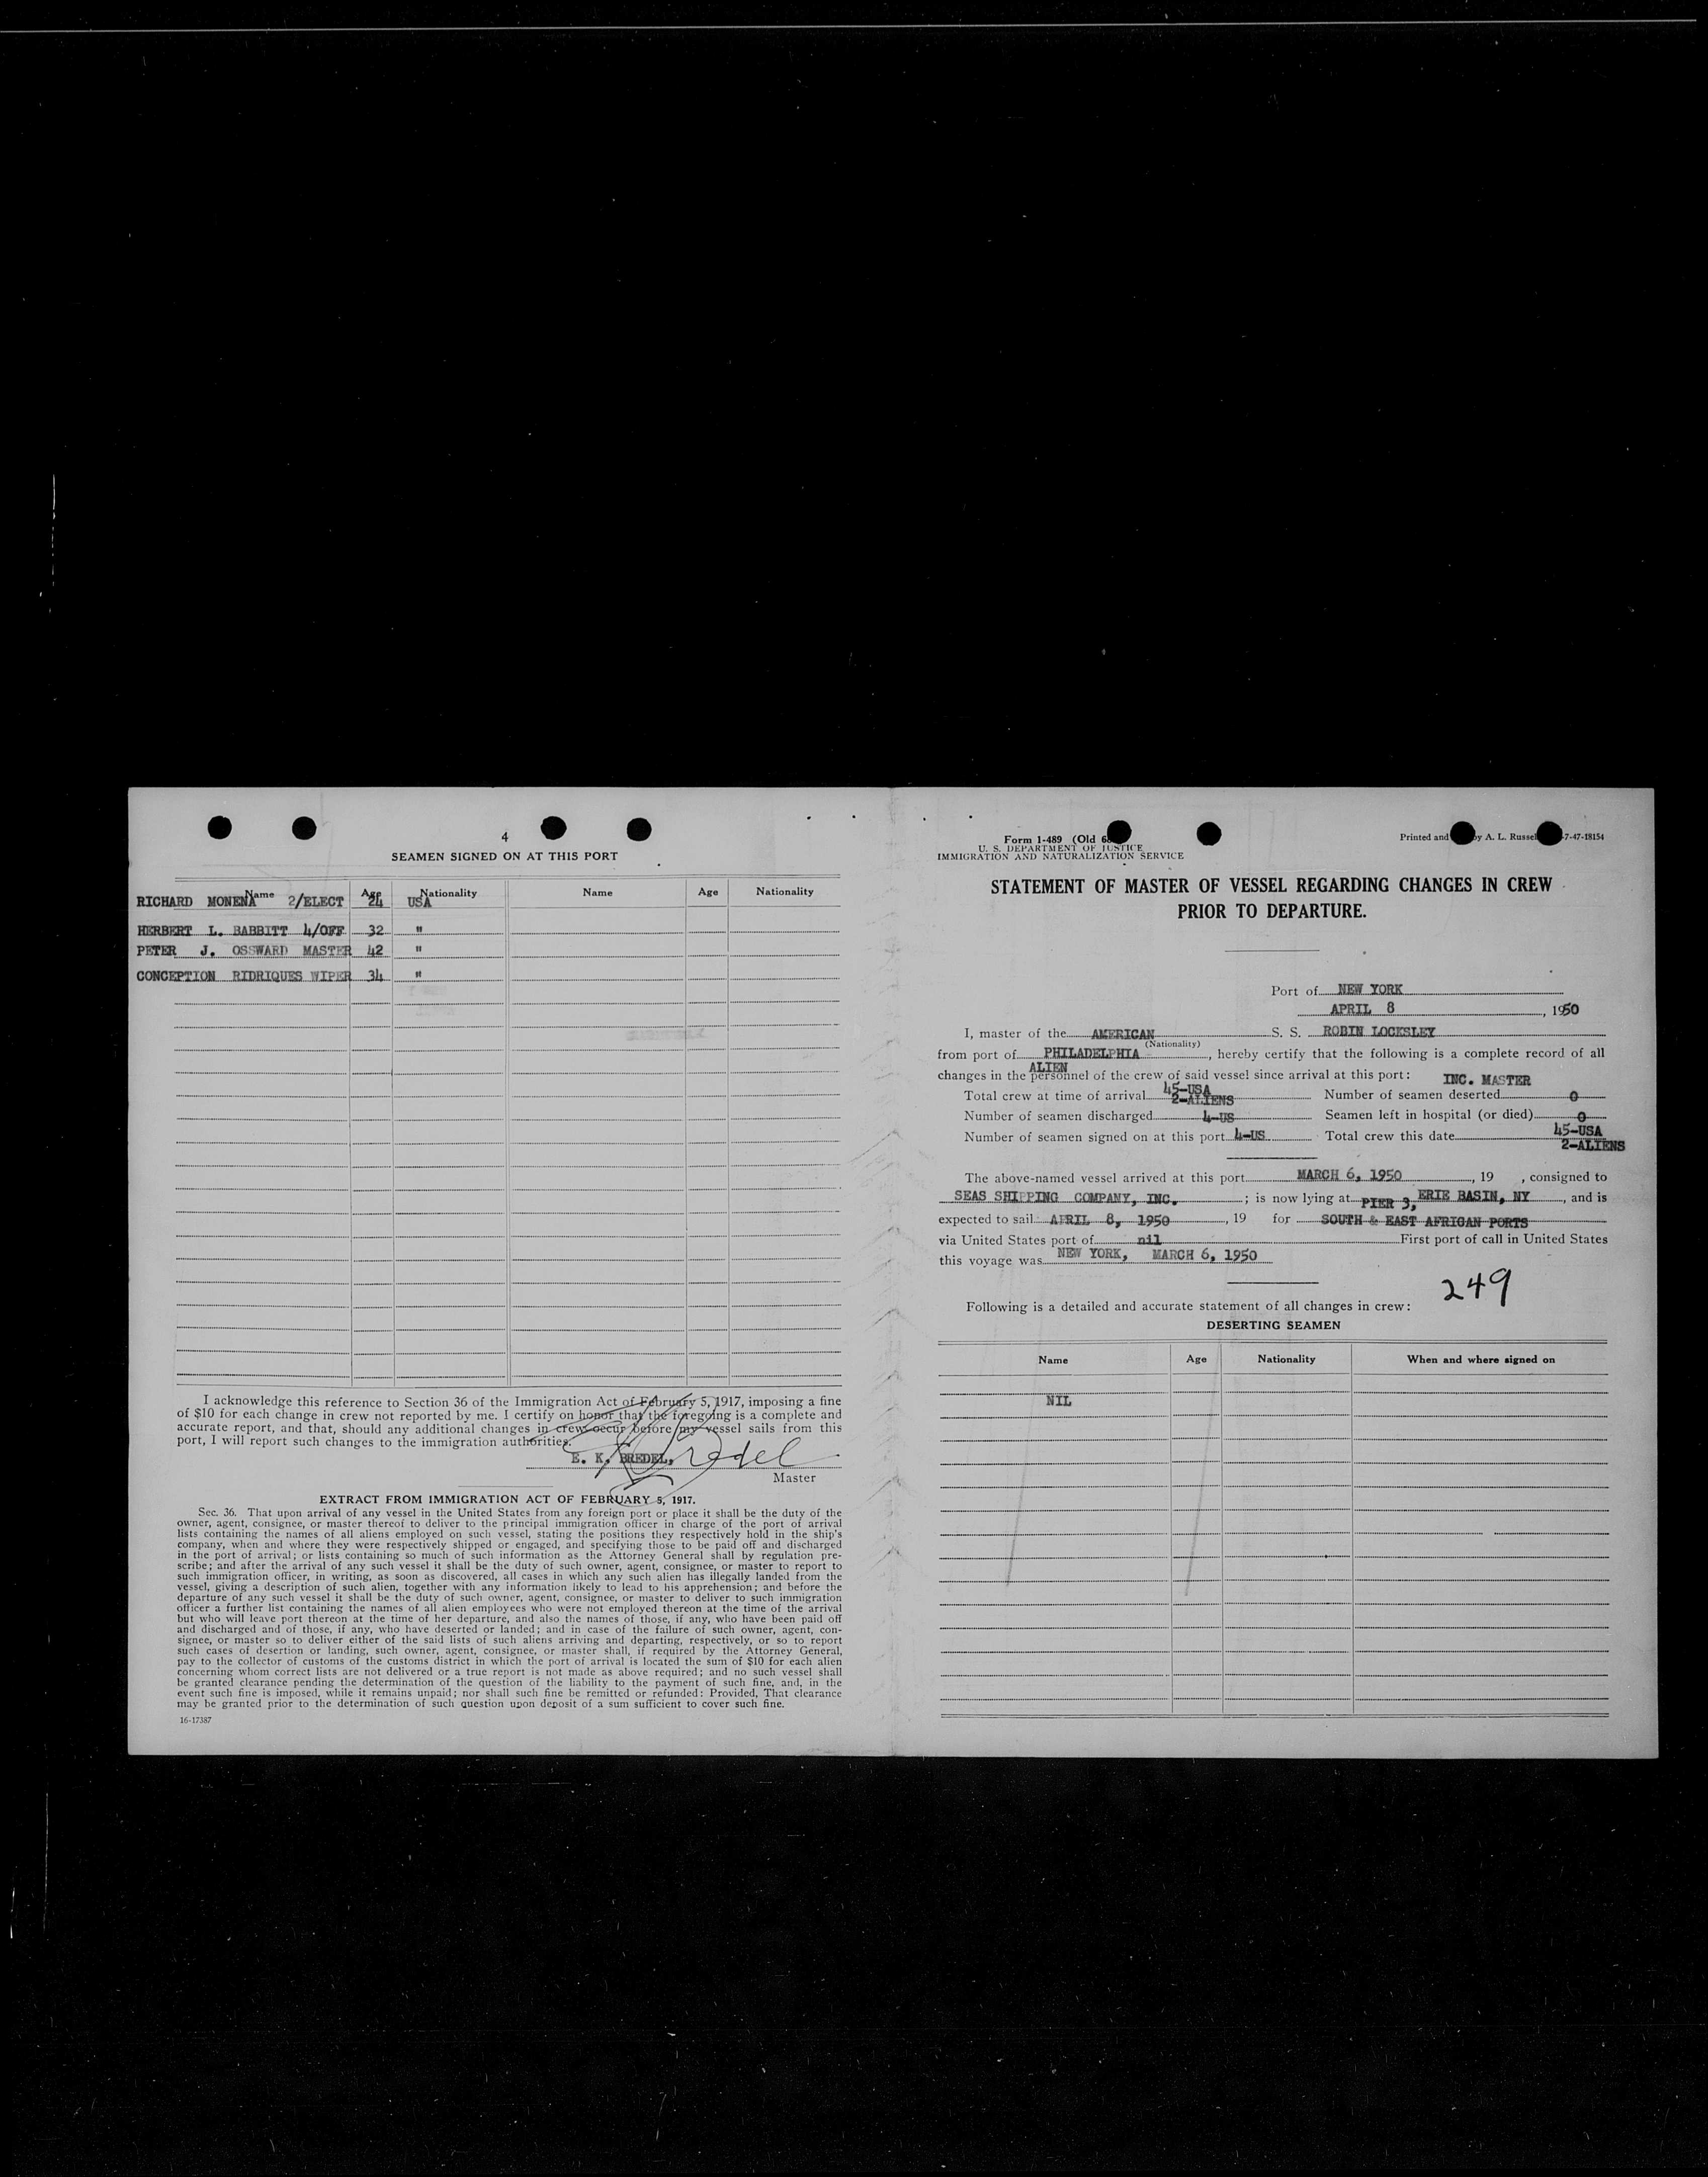 4
SEAMEN SIGNED ON AT THIS PORT
Name Age Nationality Name Age Nationality
RICHARD MONENA 2/ELECT 24 USA
HERBERT L. BABBITT 4/OFF 32 "
PETER J. OSSWARD MASTER 42 "
CONCEPTION RIDRIQUES WIPER 34 "
I acknowledge this reference to Section 36 of the Immigration Act of February 5, 1917, imposing a fine
of $10 for each change in crew not reported by me. I certify on honor that the foregoing is a complete and
accurate report, and that, should any additional changes in crew occur before my vessel sails from this
port, I will report such changes to the immigration authorities.
E. K. BREDEL,
Master
EXTRACT FROM IMMIGRATION ACT OF FEBRUARY 5, 1917.
Sec. 36. That upon arrival of any vessel in the United States from any foreign port or place it shall be the duty of the
owner, agent, consignee, or master thereof to deliver to the principal immigration officer in charge of the port of arrival
lists containing the names of all aliens employed on such vessel, stating the positions they respectively hold in the ship's
company, when and where they were respectively shipped or engaged, and specifying those to be paid off and discharged
in the port of arrival; or lists containing so much of such information as the Attorney General shall by regulation pre-
scribe; and after the arrival of any such vessel it shall be the duty of such owner, agent, consignee, or master to report to
such immigration officer, in writing, as soon as discovered, all cases in which any such alien has illegally landed from the
vessel, giving a description of such alien, together with any information likely to lead to his apprehension; and before the
departure of any such vessel it shall be the duty of such owner, agent, consignee, or master to deliver to such immigration
officer a further list containing the names of all alien employees who were not employed thereon at the time of the arrival
but who will leave port thereon at the time of her departure, and also the names of those, if any, who have been paid off
and discharged and of those, if any, who have deserted or landed; and in case of the failure of such owner, agent, con-
signee, or master so to deliver either of the said lists of such aliens arriving and departing, respectively, or so to report
such cases of desertion or landing, such owner, agent, consignee, or master shall, if required by the Attorney General,
pay to the collector of customs of the customs district in which the port of arrival is located the sum of $10 for each alien
concerning whom correct lists are not delivered or a true report is not made as above required; and no such vessel shall
be granted clearance pending the determination of the question of the liability to the payment of such fine, and, in the
event such fine is imposed, while it remains unpaid; nor shall such fine be remitted or refunded: Provided, That clearance
may be granted prior to the determination of such question upon deposit of a sum sufficient to cover such fine.
16-17387
Form I-489 (Old 6
Printed and by A. L. Russel 7-47-18154
U. S. DEPARTMENT OF JUSTICE
IMMIGRATION AND NATURALIZATION SERVICE
STATEMENT OF MASTER OF VESSEL REGARDING CHANGES IN CREW
PRIOR TO DEPARTURE.
Port of NEW YORK
APRIL 8, 1950
I, master of the AMERICAN S. S. ROBIN LOCKSLEY
(Nationality)
from port of PHILADELPHIA, hereby certify that the following is a complete record of all
ALIEN
changes in the personnel of the crew of said vessel since arrival at this port: INC. MASTER
Total crew at time of arrival 45-USA 2-ALIENS Number of seamen deserted 0
Number of seamen discharged 4-US Seamen left in hospital (or died) 0
Number of seamen signed on at this port 4-US Total crew this date 45-USA
2-ALIENS
The above-named vessel arrived at this port MARCH 6, 1950, 19 , consigned to
SEAS SHIPPING COMPANY, INC. ; is now lying at PIER 3, ERIE BASIN, NY, and is
expected to sail APRIL 8, 1950, 19 for SOUTH & EAST AFRICAN PORTS
via United States port of nil First port of call in United States
this voyage was NEW YORK, MARCH 6, 1950
249
Following is a detailed and accurate statement of all changes in crew:
DESERTING SEAMEN
Name Age Nationality When and where signed on
NIL